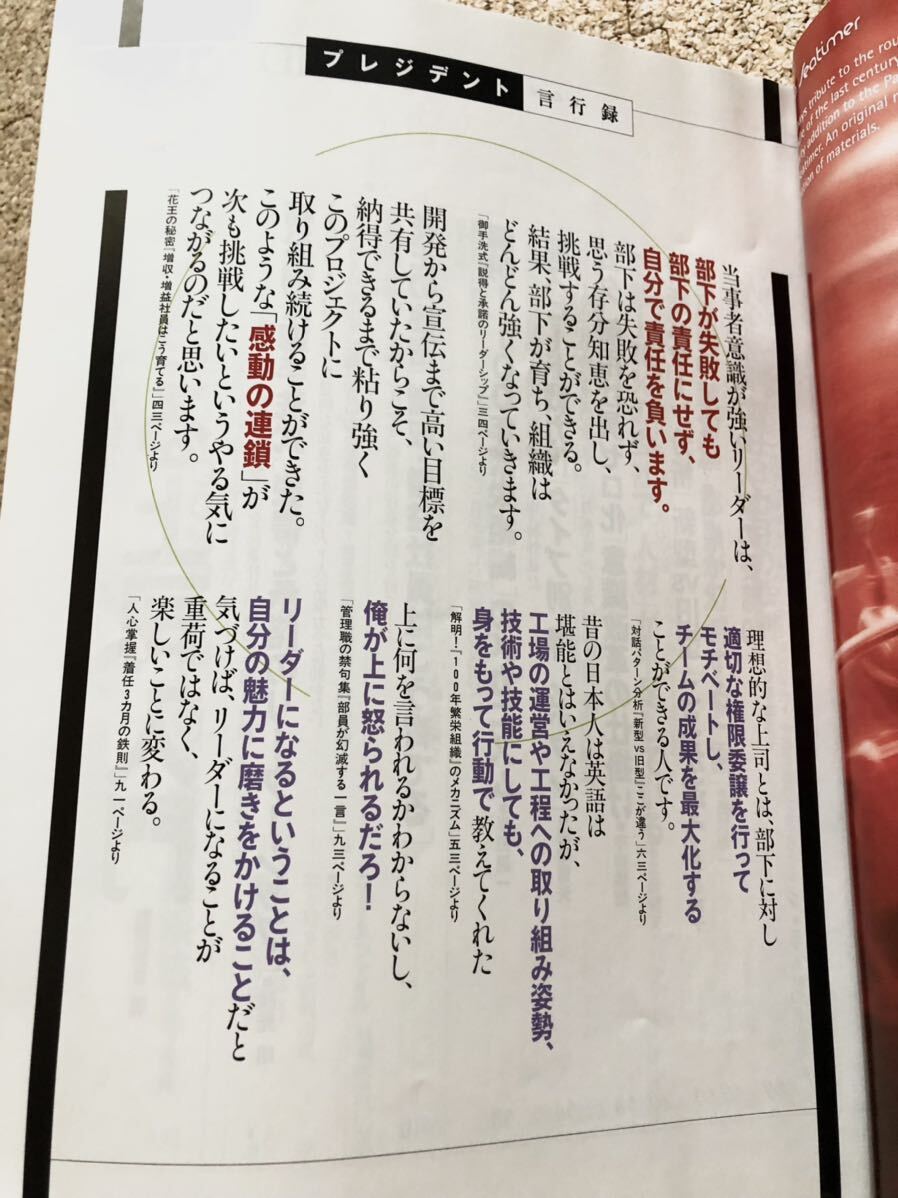 プレジデント 言行録
当事者意識が強いリーダーは、
部下が失敗しても
部下の責任にせず、
自分で責任を負います。
部下は失敗を恐れず、
思う存分知恵を出し、
挑戦することができる。
結果、部下が育ち、組織は
どんどん強くなっていきます。
「御手洗式『説得と承諾のリーダーシップ』」三四ページより
開発から宣伝まで高い目標を
共有していたからこそ、
納得できるまで粘り強く
このプロジェクトに
取り組み続けることができた。
このような「感動の連鎖」が
次も挑戦したいというやる気に
つながるのだと思います。
「花王の秘密『増収・増益社員はこう育てる』」四三ページより
理想的な上司とは、部下に対し
適切な権限委譲を行って
モチベートし、
チームの成果を最大化する
ことができる人です。
「対話パターン分析『新型vs旧型』ここが違う」六三ページより
昔の日本人は英語は
堪能とはいえなかったが、
工場の運営や工程への取り組み姿勢、
技術や技能にしても、
身をもって行動で教えてくれた
「解明!『100年繁栄組織』のメカニズム」五三ページより
上に何を言われるかわからないし、
俺が上に怒られるだろ!
「管理職の禁句集『部員が幻滅する一言』」九三ページより
リーダーになるということは、
自分の魅力に磨きをかけることだと
気づけば、リーダーになることが
重荷ではなく、
楽しいことに変わる。
「人心掌握『着任3カ月の鉄則』」九一ページより
Seatimer
tribute to the rou
of the last century
addition to the Pa
An original
of materials.